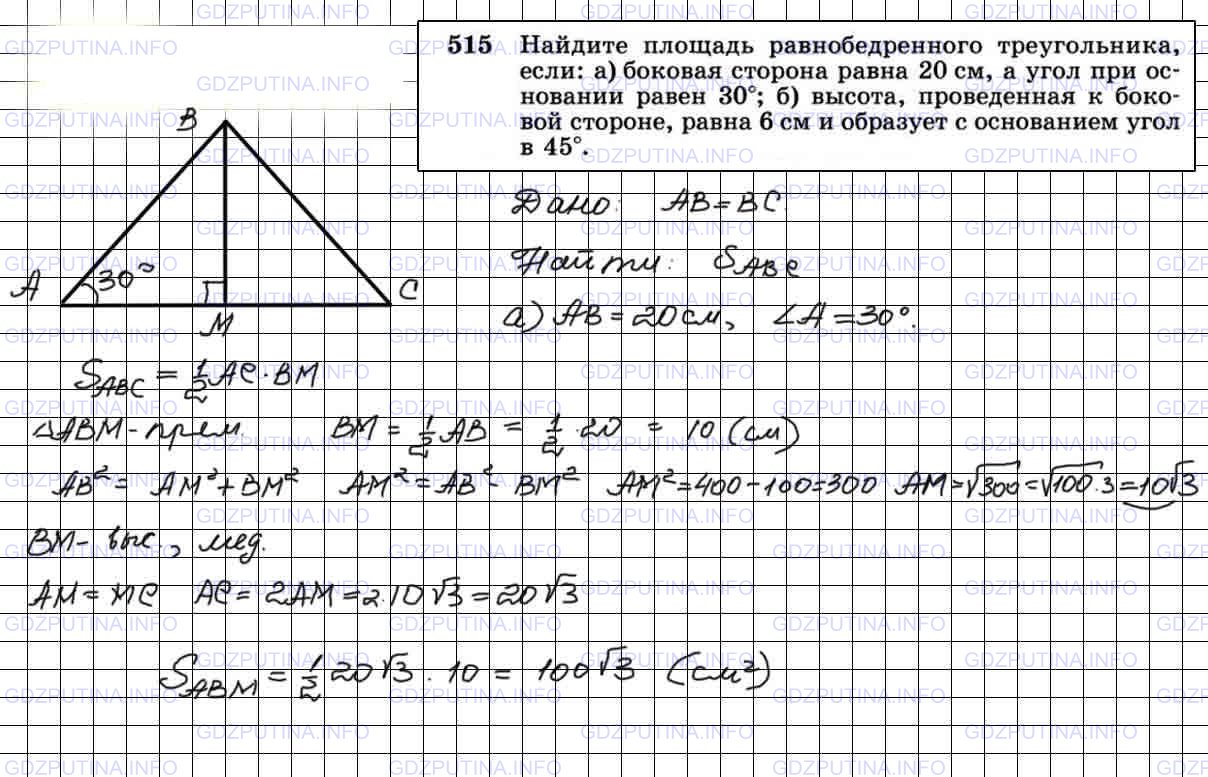 515 Найдите площадь равнобедренного треугольника,
если: а) боковая сторона равна 20 см, а угол при ос-
новании равен 30°; б) высота, проведенная к боко-
вой стороне, равна 6 см и образует с основанием угол
в 45°.
B
A
30°
M
C
Дано: AB = BC.
Найти: S_ABC
а) AB = 20 см, ∠A = 30°.
S_ABC = 1/2 AC · BM
△ABM - прям. BM = 1/2 AB = 1/2 · 20 = 10 (см)
AB² = AM² + BM² AM² = AB² - BM² AM² = 400 - 100 = 300 AM = √300 = √100·3 = 10√3
BM - выс., мед.
AM = MC AC = 2AM = 2·10√3 = 20√3
S_ABM = 1/2 20√3 · 10 = 100√3 (см²)
GDZPUTINA.INFO